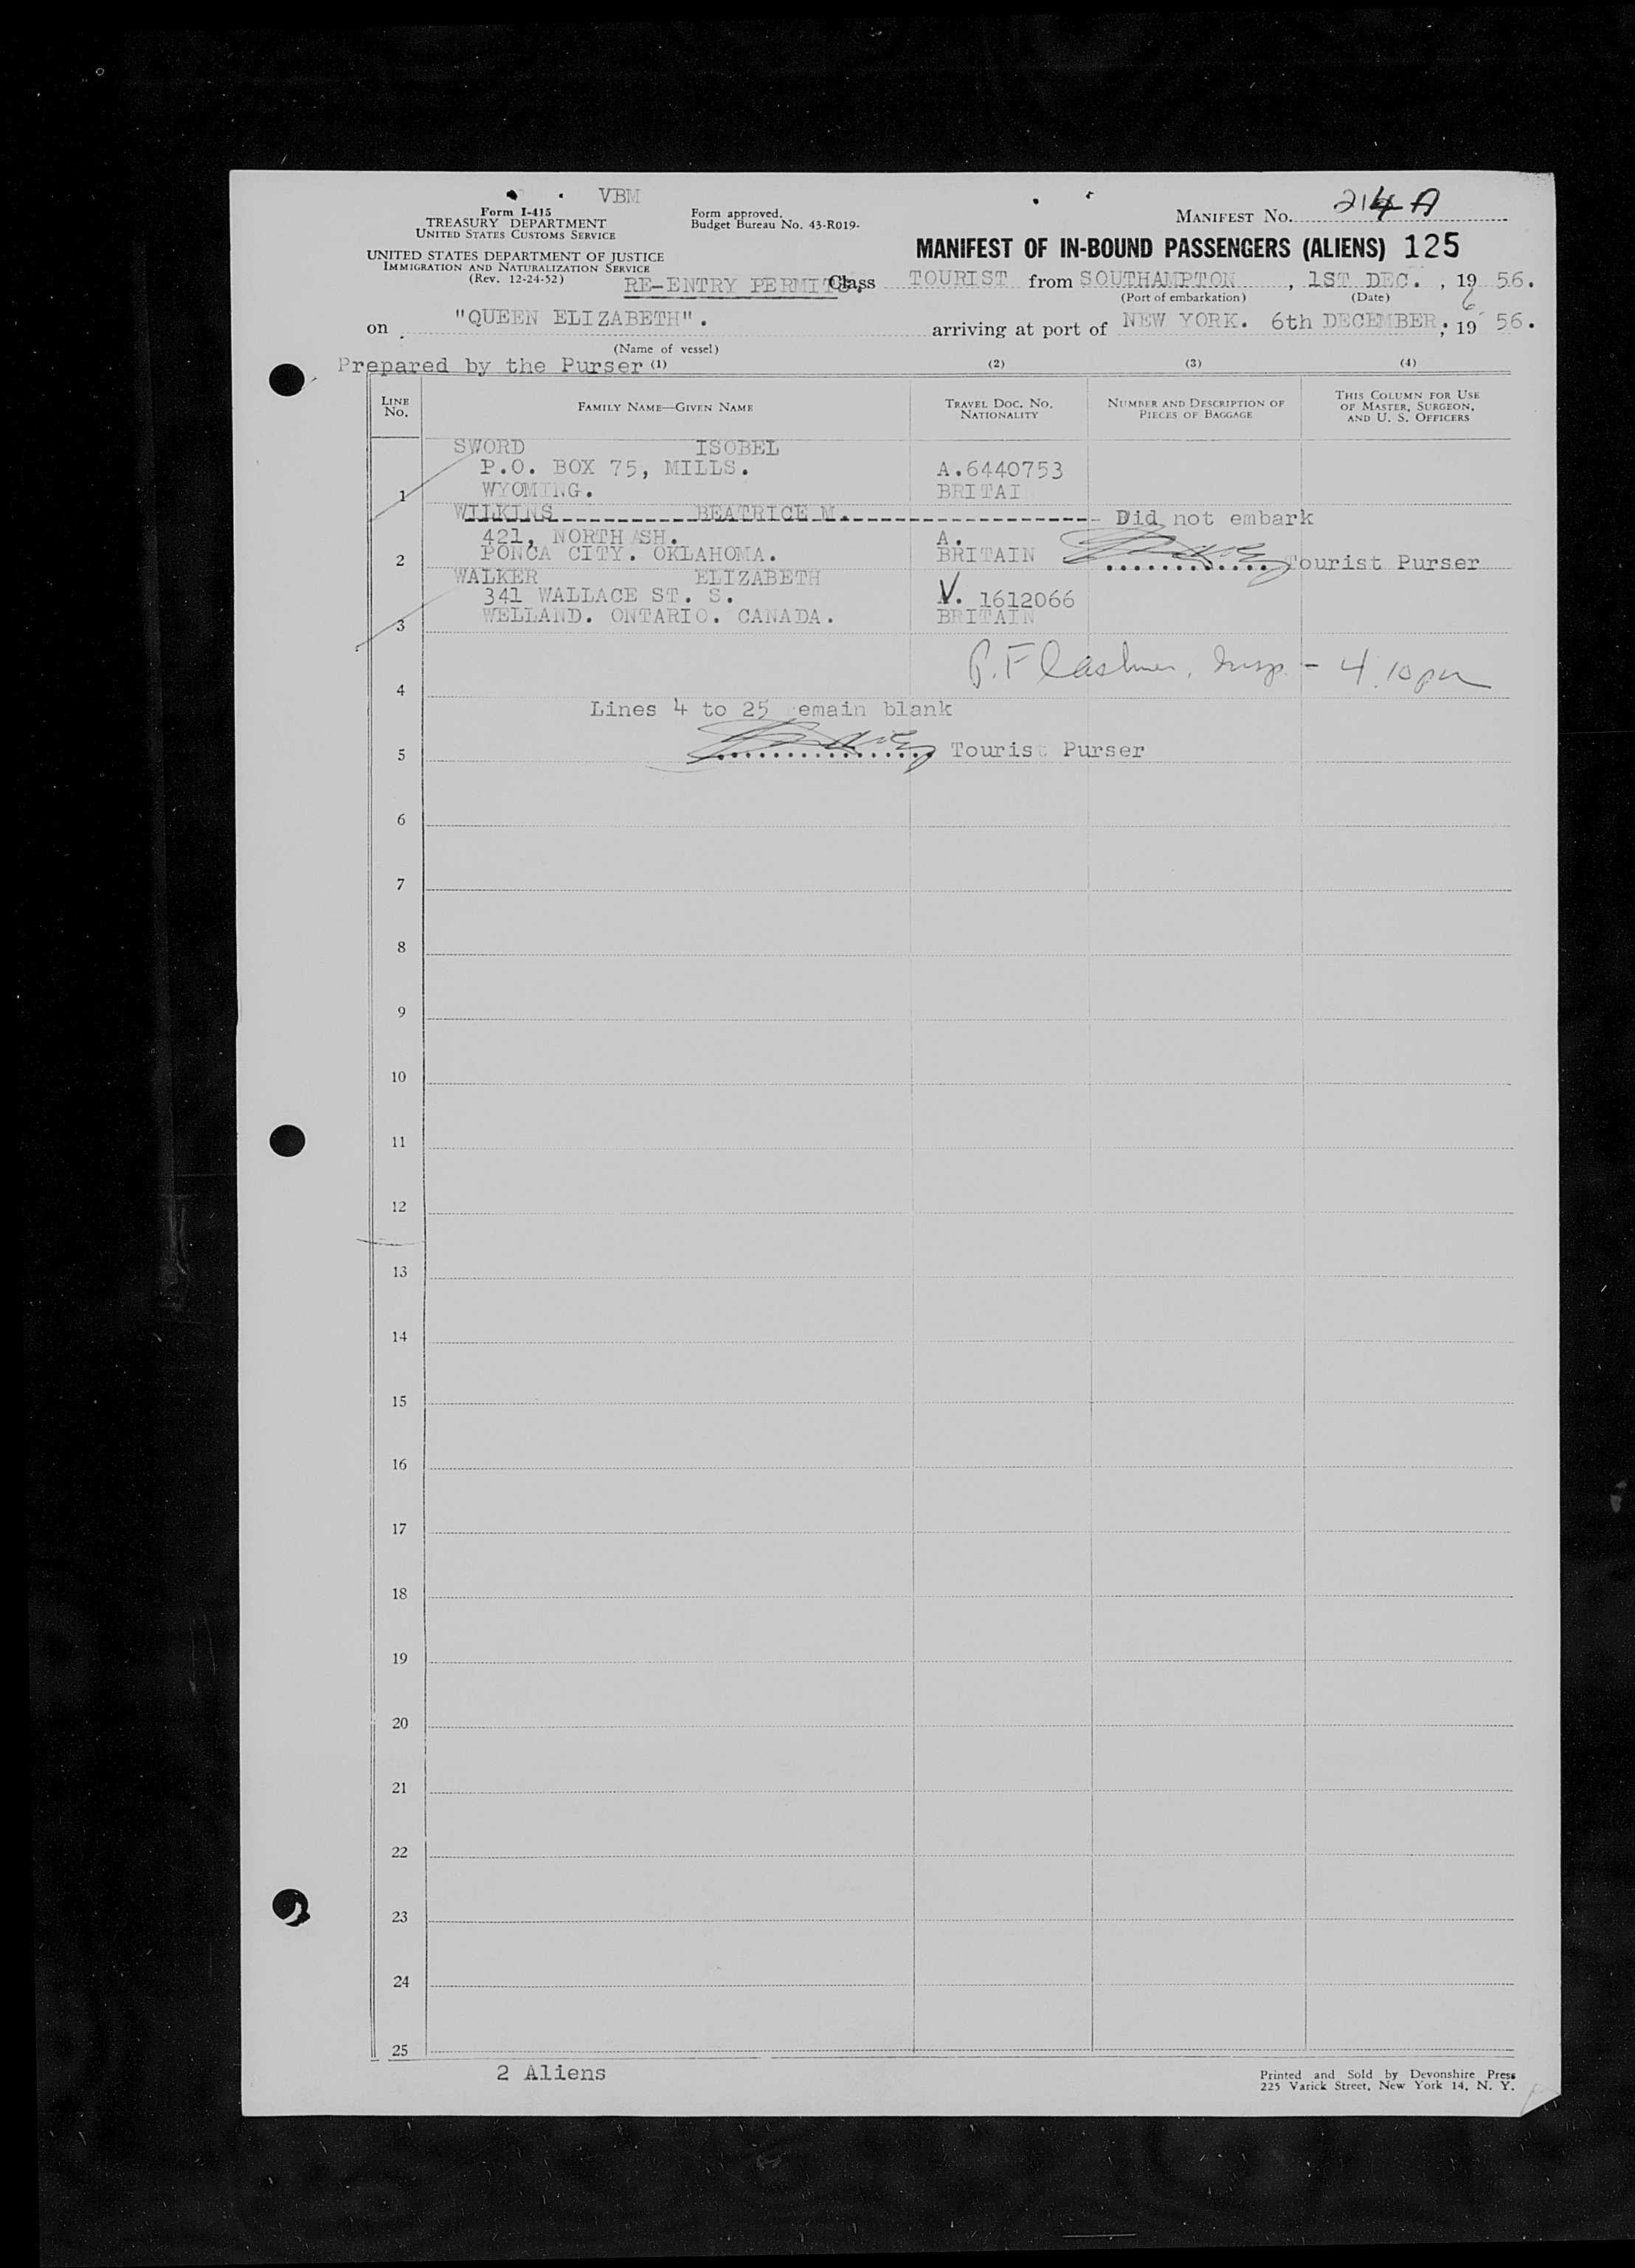 VBM
Form I-415
TREASURY DEPARTMENT
UNITED STATES CUSTOMS SERVICE
UNITED STATES DEPARTMENT OF JUSTICE
IMMIGRATION AND NATURALIZATION SERVICE
(Rev. 12-24-52)
Form approved.
Budget Bureau No. 43-R019-
MANIFEST No. 214 A
MANIFEST OF IN-BOUND PASSENGERS (ALIENS) 125
RE-ENTRY PERMITS. Class TOURIST from SOUTHAMPTON, 1ST DEC., 19 56.
(Port of embarkation) (Date)
6
on "QUEEN ELIZABETH". arriving at port of NEW YORK. 6th DECEMBER., 19 56.
(Name of vessel)
Prepared by the Purser (1) (2) (3) (4)
LINE No. FAMILY NAME—GIVEN NAME TRAVEL DOC. No. NATIONALITY NUMBER AND DESCRIPTION OF PIECES OF BAGGAGE THIS COLUMN FOR USE OF MASTER, SURGEON, AND U. S. OFFICERS
SWORD ISOBEL
P.O. BOX 75, MILLS. A.6440753
1 WYOMING. BRITAI
WILKINS BEATRICE M. Did not embark
421, NORTH ASH. A.
2 PONCA CITY. OKLAHOMA. BRITAIN Tourist Purser
WALKER ELIZABETH
341 WALLACE ST. S. V. 1612066
3 WELLAND. ONTARIO. CANADA. BRITAIN
P. Flashner, Insp. - 4.10 pm
4
Lines 4 to 25 emain blank
5 Tourist Purser
6
7
8
9
10
11
12
13
14
15
16
17
18
19
20
21
22
23
24
25
2 Aliens
Printed and Sold by Devonshire Press
225 Varick Street, New York 14, N. Y.